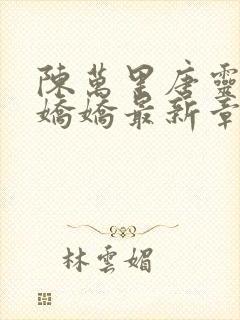 陳萬里唐靈
嬌嬌最新章
林雲媚